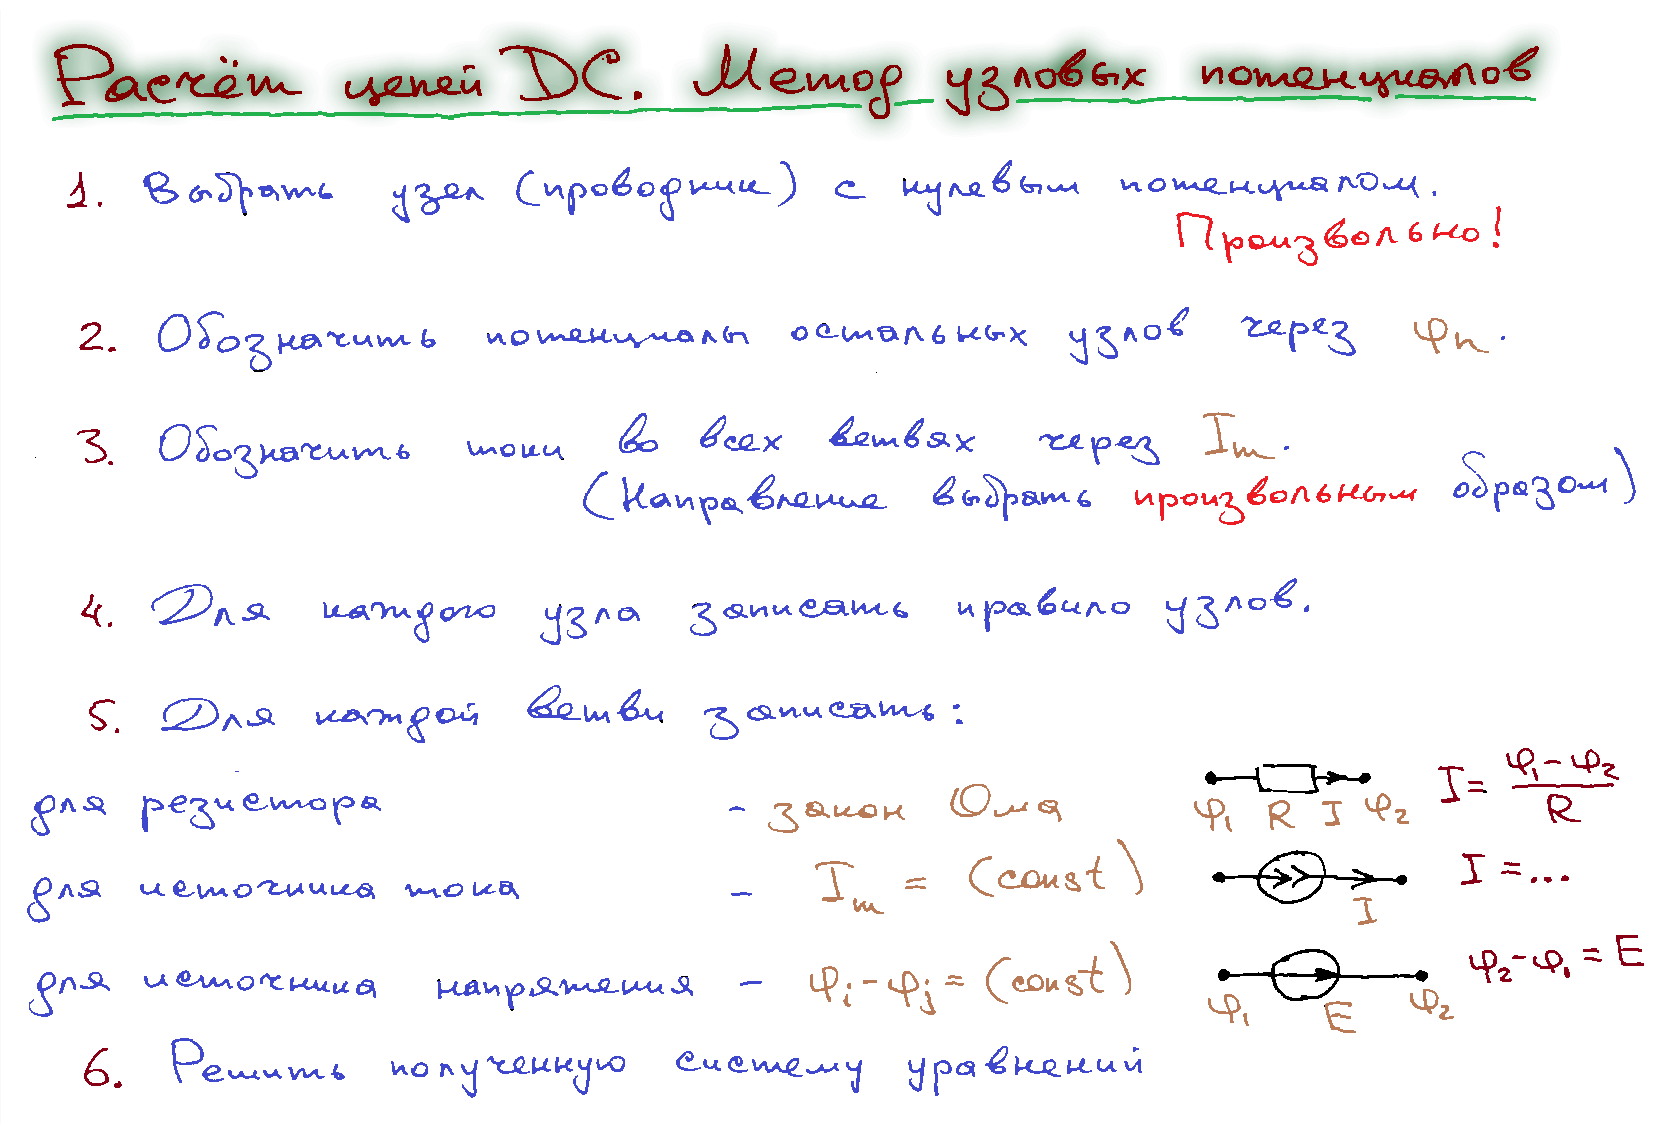 Расчёт цепей DC. Метод узловых потенциалов
1. Выбрать узел (проводник) с нулевым потенциалом.
Произвольно!
2. Обозначить потенциалы остальных узлов через φn.
3. Обозначить токи во всех ветвях через Im.
(Направление выбрать произвольным образом)
4. Для каждого узла записать правило узлов.
5. Для каждой ветви записать:
для резистора - закон Ома φ1 R I φ2 I = (φ1 - φ2)/R
для источника тока - Im = (const) I I = ...
для источника напряжения - φi - φj = (const) φ1 E φ2 φ2 - φ1 = E
6. Решить полученную систему уравнений